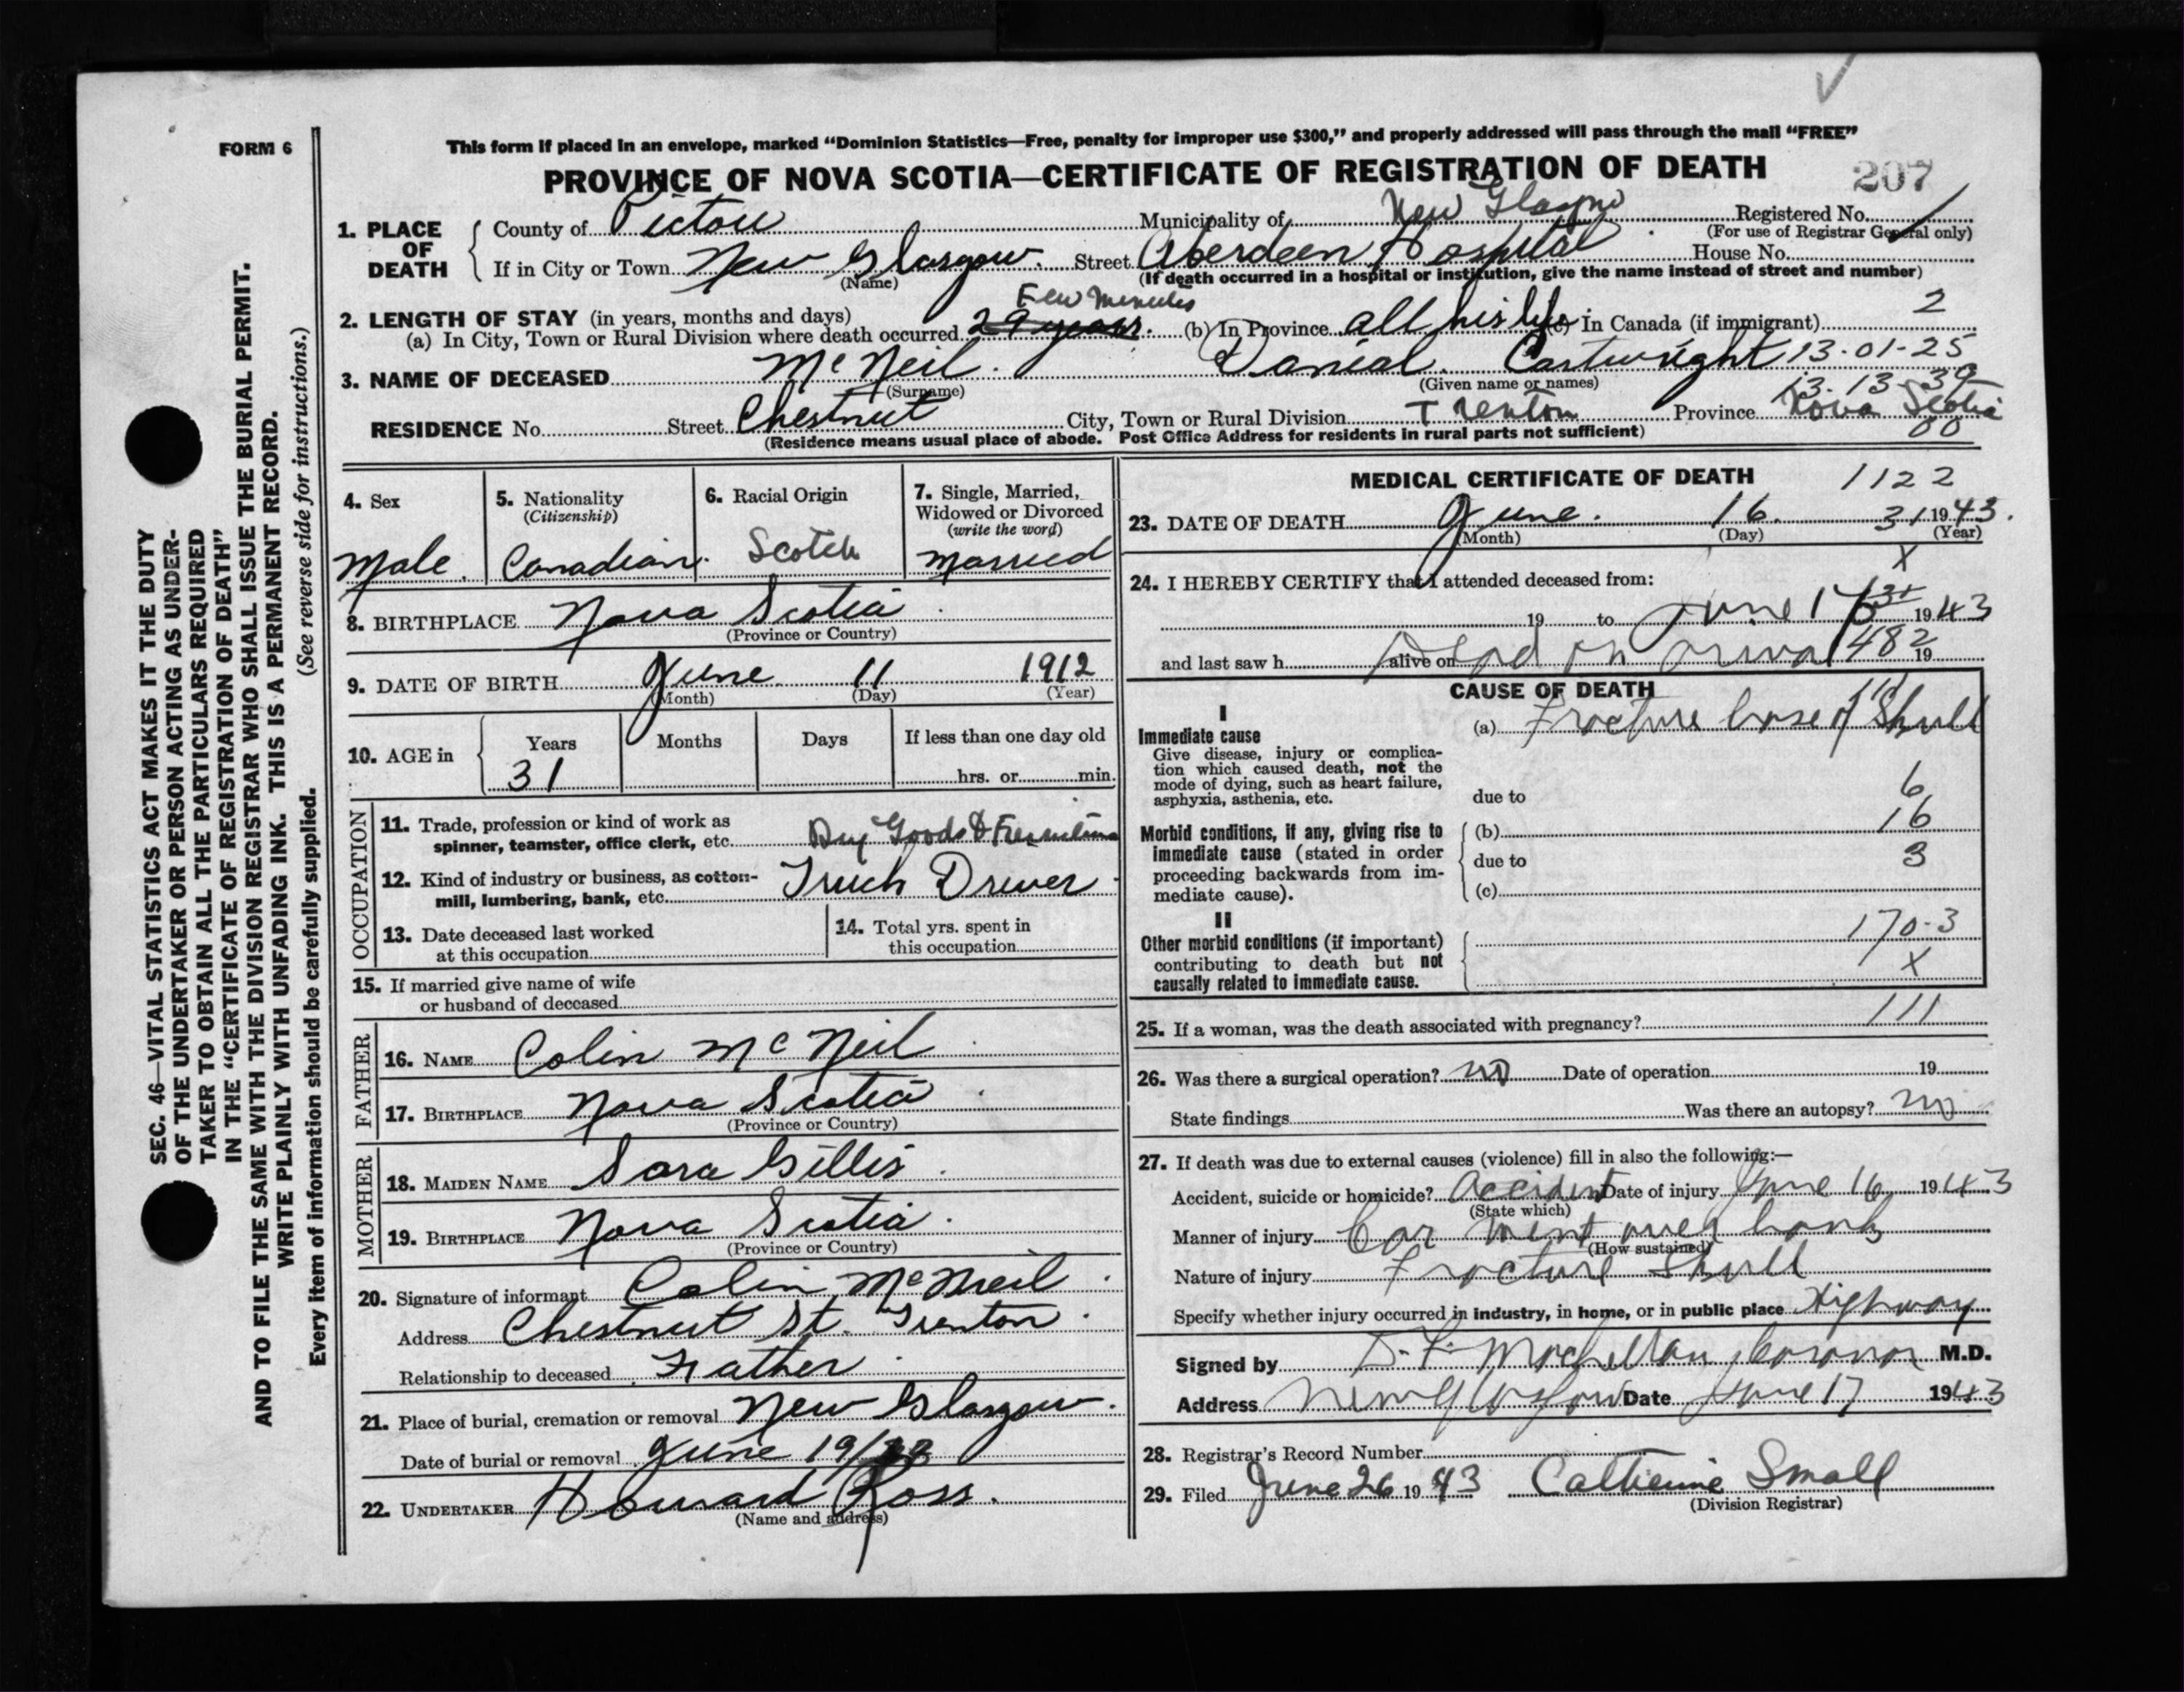 FORM 6
This form if placed in an envelope, marked “Dominion Statistics—Free, penalty for improper use $300,” and properly addressed will pass through the mail “FREE”
PROVINCE OF NOVA SCOTIA—CERTIFICATE OF REGISTRATION OF DEATH
207
1. PLACE OF DEATH
County of Pictou Municipality of New Glasgow Registered No.
(For use of Registrar General only)
If in City or Town New Glasgow. Street Aberdeen Hospital House No.
(Name) (If death occurred in a hospital or institution, give the name instead of street and number)
Few Minutes
2. LENGTH OF STAY (in years, months and days)
(a) In City, Town or Rural Division where death occurred 29 years. (b) In Province all his life (c) In Canada (if immigrant) 2
3. NAME OF DECEASED McNeil. Danial. Cartwright 13-01-25
(Surname) (Given name or names)
13-13-30
RESIDENCE No. Street Chestnut City, Town or Rural Division Trenton Province Nova Scotia
(Residence means usual place of abode. Post Office Address for residents in rural parts not sufficient) 00
4. Sex
Male.
5. Nationality
(Citizenship)
Canadian.
6. Racial Origin
Scotch
7. Single, Married,
Widowed or Divorced
(write the word)
Married
8. BIRTHPLACE Nova Scotia
(Province or Country)
9. DATE OF BIRTH June 11 1912
(Month) (Day) (Year)
10. AGE in
Years Months Days If less than one day old
31 hrs. or min.
OCCUPATION
11. Trade, profession or kind of work as
spinner, teamster, office clerk, etc. Dry Goods &
12. Kind of industry or business, as cotton-
mill, lumbering, bank, etc. Truck Driver
13. Date deceased last worked
at this occupation
14. Total yrs. spent in
this occupation
15. If married give name of wife
or husband of deceased
FATHER
16. NAME Colin McNeil
17. BIRTHPLACE Nova Scotia
(Province or Country)
MOTHER
18. MAIDEN NAME Sara Gillis
19. BIRTHPLACE Nova Scotia
(Province or Country)
20. Signature of informant Colin McNeil
Address Chestnut St. Trenton
Relationship to deceased Father
21. Place of burial, cremation or removal New Glasgow.
Date of burial or removal June 19/
22. UNDERTAKER Howard Ross.
(Name and address)
MEDICAL CERTIFICATE OF DEATH 1122
23. DATE OF DEATH June. 16. 31 1943.
(Month) (Day) (Year)
X
24. I HEREBY CERTIFY that I attended deceased from:
19 to June 16 1943
and last saw h alive on Dead on arrival 482 19
CAUSE OF DEATH
I
Immediate cause
Give disease, injury or complica-
tion which caused death, not the
mode of dying, such as heart failure,
asphyxia, asthenia, etc.
(a) Fracture base of Skull
due to 6
Morbid conditions, if any, giving rise to
immediate cause (stated in order
proceeding backwards from im-
mediate cause).
(b) 16
due to 3
(c)
II
Other morbid conditions (if important)
contributing to death but not
causally related to immediate cause.
170-3
X
25. If a woman, was the death associated with pregnancy? 111
26. Was there a surgical operation? no Date of operation 19
State findings Was there an autopsy? no
27. If death was due to external causes (violence) fill in also the following:—
Accident, suicide or homicide? Accident Date of injury June 16 1943
(State which)
Manner of injury Car went over bank
(How sustained)
Nature of injury Fracture Skull
Specify whether injury occurred in industry, in home, or in public place Highway
Signed by Coroner M.D.
Address New Glasgow Date June 17 1943
28. Registrar's Record Number
29. Filed June 26 1943 Catherine Small
(Division Registrar)
SEC. 46—VITAL STATISTICS ACT MAKES IT THE DUTY
OF THE UNDERTAKER OR PERSON ACTING AS UNDER-
TAKER TO OBTAIN ALL THE PARTICULARS REQUIRED
IN THE “CERTIFICATE OF REGISTRATION OF DEATH”
AND TO FILE THE SAME WITH THE DIVISION REGISTRAR WHO SHALL ISSUE THE BURIAL PERMIT.
WRITE PLAINLY WITH UNFADING INK. THIS IS A PERMANENT RECORD.
Every item of information should be carefully supplied. (See reverse side for instructions.)